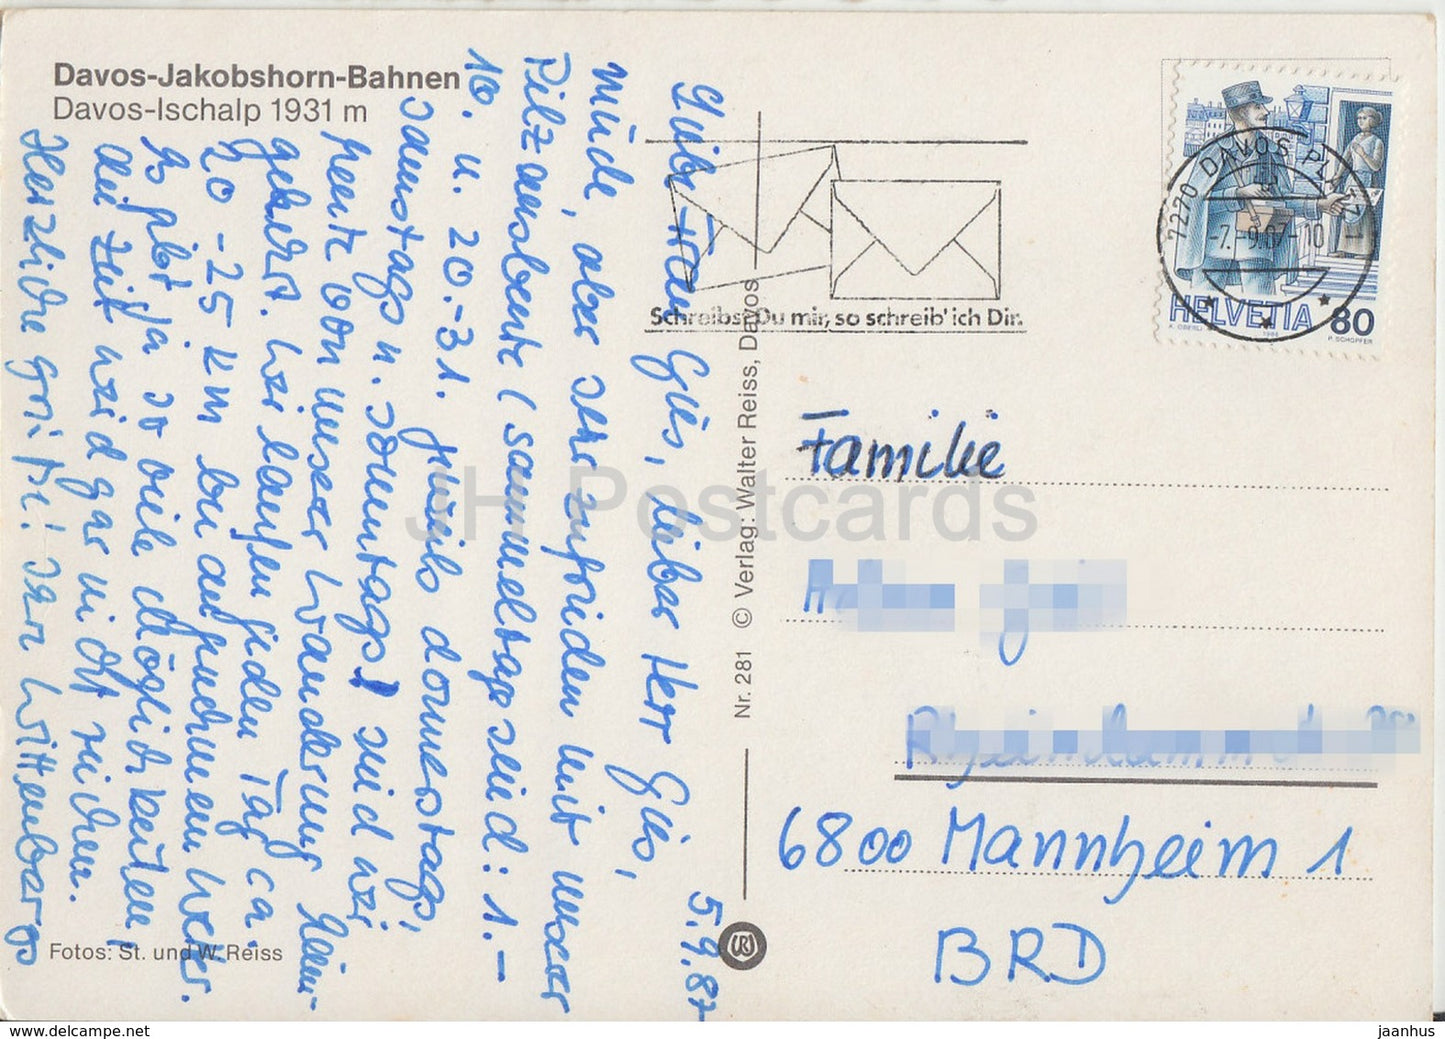 Davos-Jakobshorn-Bahnen
Davos-Ischalp 1931 m
5.9.87
Liebe Frau Giès, lieber Herr Giès,
müde, aber sehr zufrieden mit unserer
Pilzausbeute (Sammeltage sind: 1.-
10. u. 20.-31. jeweils donnerstags,
samstags u. sonntags) sind wir
heute von unserer Wanderung heim-
gekehrt. Wir laufen jeden Tag ca.
20-25 km bei angenehmem Wetter.
Es gibt ja so viele Möglichkeiten,
die Zeit wird gar nicht reichen.
Herzliche Grüße! Ihre Wittenbergs
Fotos: St. und W. Reiss
Nr. 281 © Verlag: Walter Reiss, Davos
WR
Schreibst Du mir, so schreib' ich Dir.
7270 DAVOS PL
-7.-9.87-10
HELVETIA 80
K. OBERLI 1986 P. SCHOPFER
Familie
6800 Mannheim 1
BRD
JH Postcards
www.jhpostcard.com
jaanhus